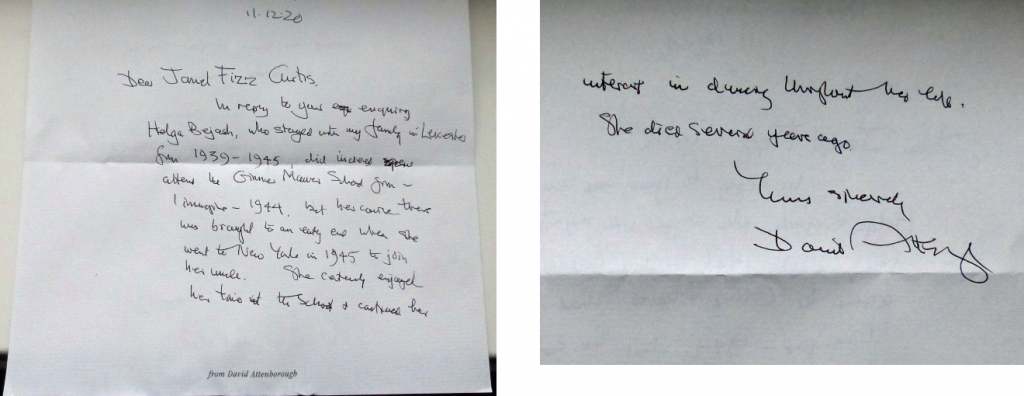 11.12.20
Dear Janet Fizz Curtis.
In reply to your enquiry
Helga Bejach, who stayed with my family in Leicester
from 1939-1945, did indeed
attend the Ginner Mawer School from -
I imagine - 1944, but her course there
was brought to an early end when she
went to New York in 1945 to join
her uncle. She certainly enjoyed
her time at the School & continued her
from David Attenborough
interest in dancing throughout her life.
She died several years ago.
Yours sincerely
David Attenborough